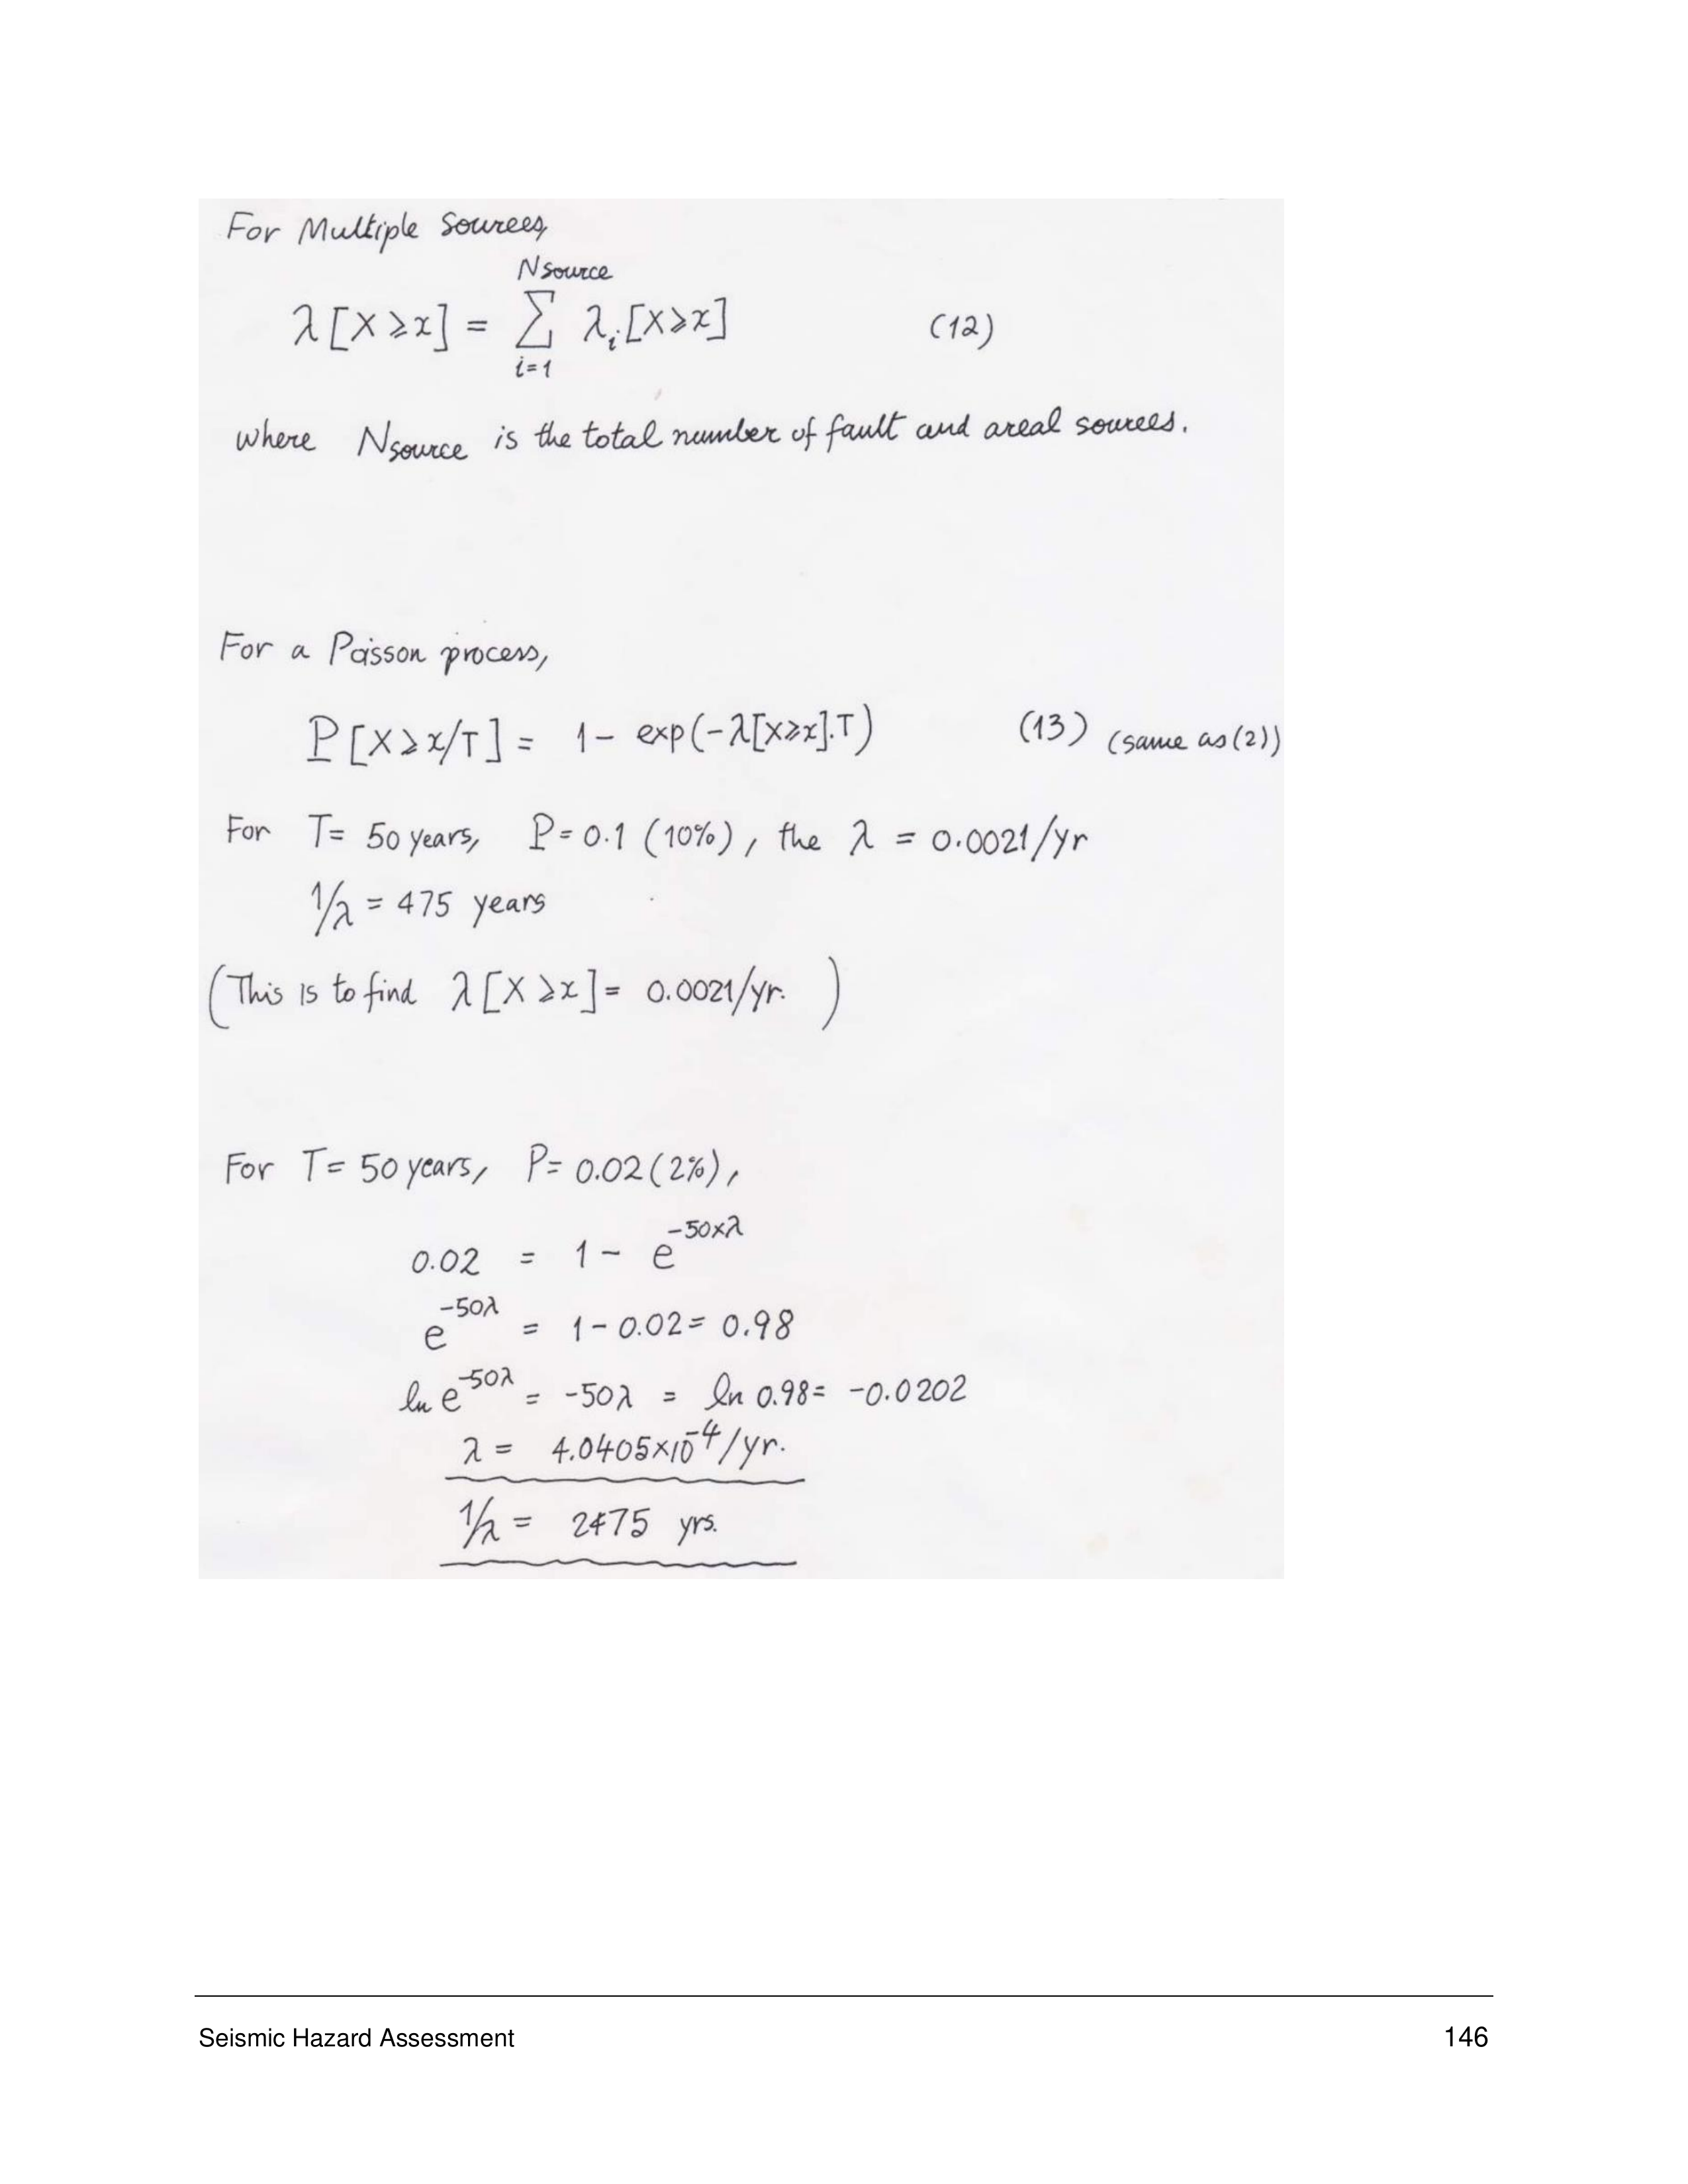 For Multiple Sources,
Nsource
λ[X≥x] = Σ λi[X≥x] (12)
i=1
where Nsource is the total number of fault and areal sources.
For a Poisson process,
P[X≥x/T] = 1 - exp(-λ[X≥x].T) (13) (same as (2))
For T= 50 years, P=0.1 (10%), the λ = 0.0021/yr
1/λ = 475 years
(This is to find λ[X≥x]= 0.0021/yr.)
For T= 50 years, P= 0.02 (2%),
0.02 = 1 - e^-50×λ
e^-50λ = 1-0.02= 0.98
ln e^-50λ = -50λ = ln 0.98= -0.0202
λ = 4.0405×10^-4/yr.
1/λ = 2475 yrs.
Seismic Hazard Assessment 146